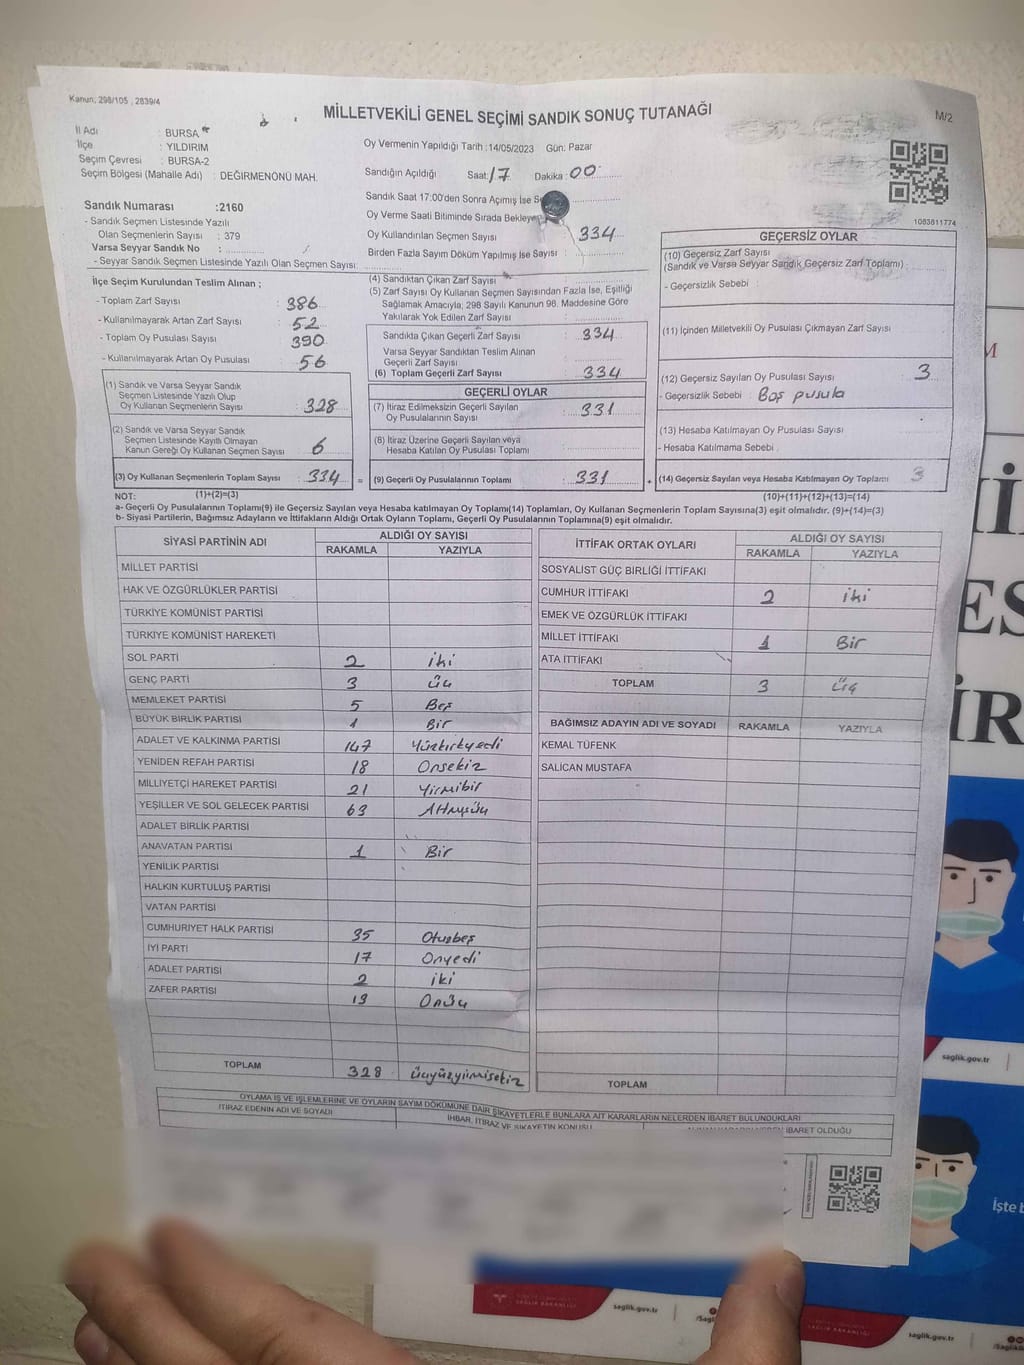 Kanun: 298/105 , 2839/4
MİLLETVEKİLİ GENEL SEÇİMİ SANDIK SONUÇ TUTANAĞI
M/2
İl Adı : BURSA
İlçe : YILDIRIM
Seçim Çevresi : BURSA-2
Seçim Bölgesi (Mahalle Adı) : DEĞİRMENÖNÜ MAH.
Oy Vermenin Yapıldığı Tarih :14/05/2023 Gün: Pazar
Sandığın Açıldığı Saat: 17 Dakika : 00
Sandık Saat 17:00'den Sonra Açımış İse
Oy Verme Saati Bitiminde Sırada
Oy Kullandırılan Seçmen Sayısı 334
Birden Fazla Sayım Döküm Yapılmış İse Sayısı :
1083811774
Sandık Numarası :2160
- Sandık Seçmen Listesinde Yazılı
Olan Seçmenlerin Sayısı : 379
Varsa Seyyar Sandık No :
- Seyyar Sandık Seçmen Listesinde Yazılı Olan Seçmen Sayısı:
İlçe Seçim Kurulundan Teslim Alınan ;
- Toplam Zarf Sayısı : 386
- Kullanılmayarak Artan Zarf Sayısı : 52
- Toplam Oy Pusulası Sayısı : 390
- Kullanılmayarak Artan Oy Pusulası : 56
(1) Sandık ve Varsa Seyyar Sandık
Seçmen Listesinde Yazılı Olup
Oy Kullanan Seçmenlerin Sayısı : 328
(2) Sandık ve Varsa Seyyar Sandık
Seçmen Listesinde Kayıtlı Olmayan
Kanun Gereği Oy Kullanan Seçmen Sayısı : 6
(3) Oy Kullanan Seçmenlerin Toplam Sayısı : 334 =
(4) Sandıktan Çıkan Zarf Sayısı :
(5) Zarf Sayısı Oy Kullanan Seçmen Sayısından Fazla İse, Eşitliği
Sağlamak Amacıyla; 298 Sayılı Kanunun 98. Maddesine Göre
Yakılarak Yok Edilen Zarf Sayısı :
Sandıkta Çıkan Geçerli Zarf Sayısı : 334
Varsa Seyyar Sandıktan Teslim Alınan
Geçerli Zarf Sayısı :
(6) Toplam Geçerli Zarf Sayısı : 334
GEÇERLİ OYLAR
(7) İtiraz Edilmeksizin Geçerli Sayılan
Oy Pusulalarının Sayısı : 331
(8) İtiraz Üzerine Geçerli Sayılan veya
Hesaba Katılan Oy Pusulası Toplamı :
(9) Geçerli Oy Pusulalarının Toplamı : 331 +
GEÇERSİZ OYLAR
(10) Geçersiz Zarf Sayısı
(Sandık ve Varsa Seyyar Sandık Geçersiz Zarf Toplamı) :
- Geçersizlik Sebebi :
(11) İçinden Milletvekili Oy Pusulası Çıkmayan Zarf Sayısı
(12) Geçersiz Sayılan Oy Pusulası Sayısı 3
- Geçersizlik Sebebi : Boş pusula
(13) Hesaba Katılmayan Oy Pusulası Sayısı
- Hesaba Katılmama Sebebi :
(14) Geçersiz Sayılan veya Hesaba Katılmayan Oy Toplamı : 3
NOT: (1)+(2)=(3) (10)+(11)+(12)+(13)=(14)
a- Geçerli Oy Pusulalarının Toplamı(9) ile Geçersiz Sayılan veya Hesaba katılmayan Oy Toplamı(14) Toplamları, Oy Kullanan Seçmenlerin Toplam Sayısına(3) eşit olmalıdır. (9)+(14)=(3)
b- Siyasi Partilerin, Bağımsız Adayların ve İttifakların Aldığı Ortak Oyların Toplamı, Geçerli Oy Pusulalarının Toplamına(9) eşit olmalıdır.
SİYASİ PARTİNİN ADI ALDIĞI OY SAYISI
RAKAMLA YAZIYLA
MİLLET PARTİSİ
HAK VE ÖZGÜRLÜKLER PARTİSİ
TÜRKİYE KOMÜNİST PARTİSİ
TÜRKİYE KOMÜNİST HAREKETİ
SOL PARTİ 2 iki
GENÇ PARTİ 3 üç
MEMLEKET PARTİSİ 5 Beş
BÜYÜK BİRLİK PARTİSİ 1 Bir
ADALET VE KALKINMA PARTİSİ 147 Yüzkırkyedi
YENİDEN REFAH PARTİSİ 18 Onsekiz
MİLLİYETÇİ HAREKET PARTİSİ 21 Yirmibir
YEŞİLLER VE SOL GELECEK PARTİSİ 63 Altmışüç
ADALET BİRLİK PARTİSİ
ANAVATAN PARTİSİ 1 Bir
YENİLİK PARTİSİ
HALKIN KURTULUŞ PARTİSİ
VATAN PARTİSİ
CUMHURİYET HALK PARTİSİ 35 Otuzbeş
İYİ PARTİ 17 Onyedi
ADALET PARTİSİ 2 iki
ZAFER PARTİSİ 13 Onüç
TOPLAM 328 üçyüzyirmisekiz
İTTİFAK ORTAK OYLARI ALDIĞI OY SAYISI
RAKAMLA YAZIYLA
SOSYALİST GÜÇ BİRLİĞİ İTTİFAKI
CUMHUR İTTİFAKI 2 iki
EMEK VE ÖZGÜRLÜK İTTİFAKI
MİLLET İTTİFAKI 1 Bir
ATA İTTİFAKI
TOPLAM 3 üç
BAĞIMSIZ ADAYIN ADI VE SOYADI RAKAMLA YAZIYLA
KEMAL TÜFENK
SALİCAN MUSTAFA
TOPLAM
OYLAMA İŞ VE İŞLEMLERİNE VE OYLARIN SAYIM DÖKÜMÜNE DAİR ŞİKAYETLERLE BUNLARA AİT KARARLARIN NELERDEN İBARET BULUNDUKLARI
İTİRAZ EDENİN ADI VE SOYADI
İHBAR, İTİRAZ VE ŞİKAYETİN KONUSU
İBARET OLDUĞU
M
İ
ES
İR
saglik.gov.tr
İşte b
SAĞLIK BAKANLIĞI
saglik.gov.tr
/Sagl
SAĞLIK BAKANLIĞI
saglik.gov.tr
/Saglik